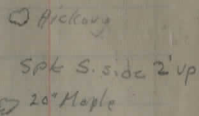 Hickory
Spk S. side 2' up
20" Maple